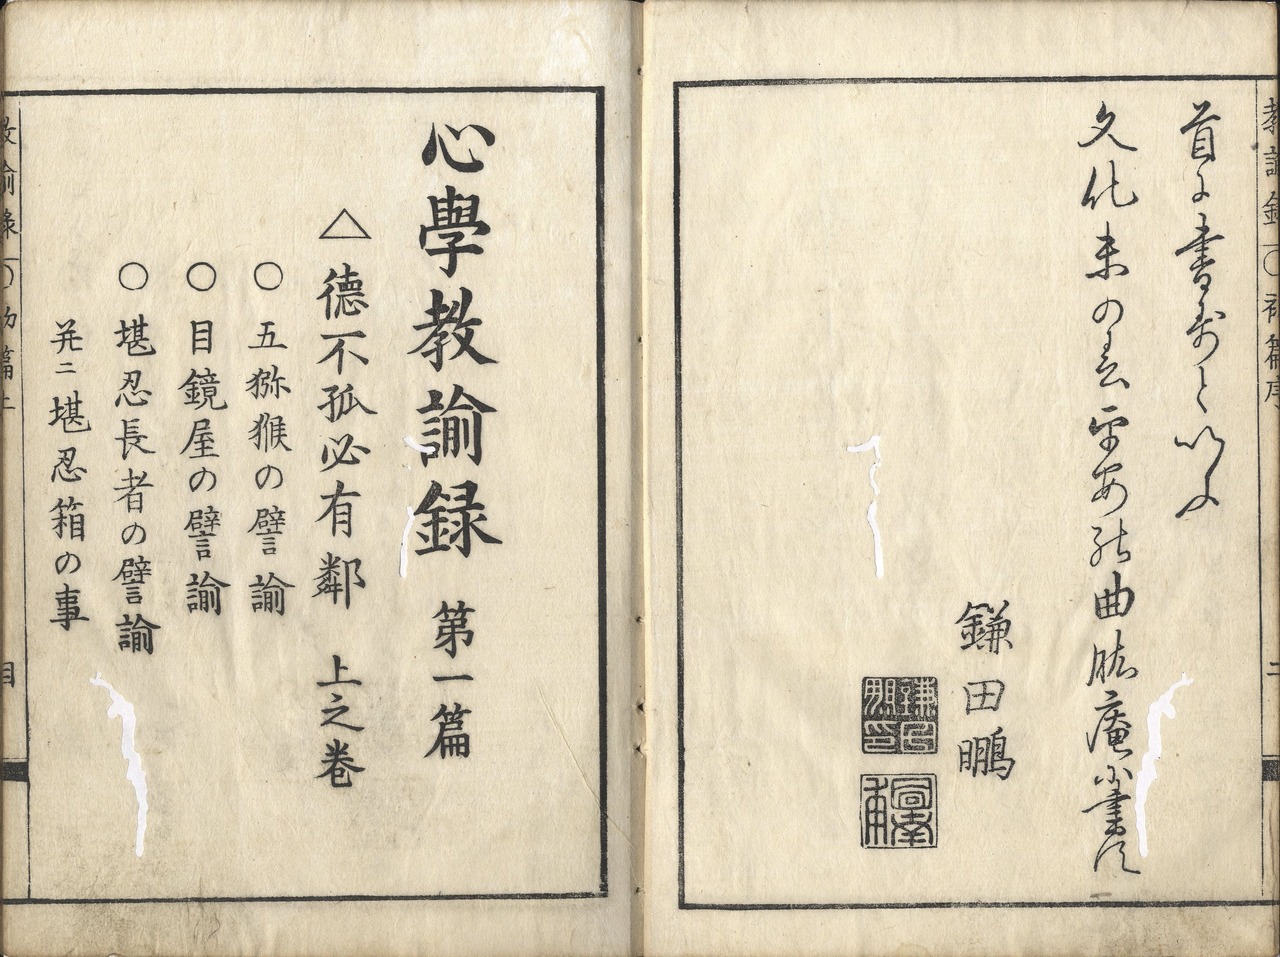 首に書すと以ふ
文化未の春平安の曲肱庵に書す
鎌田鵬
教諭録 〇 初篇序
二
心學教諭録 第一篇
△德不孤必有鄰 上之卷
〇五獼猴の譬諭
〇目鏡屋の譬諭
〇堪忍長者の譬諭
并ニ堪忍箱の事
教諭録 〇 初篇上
目